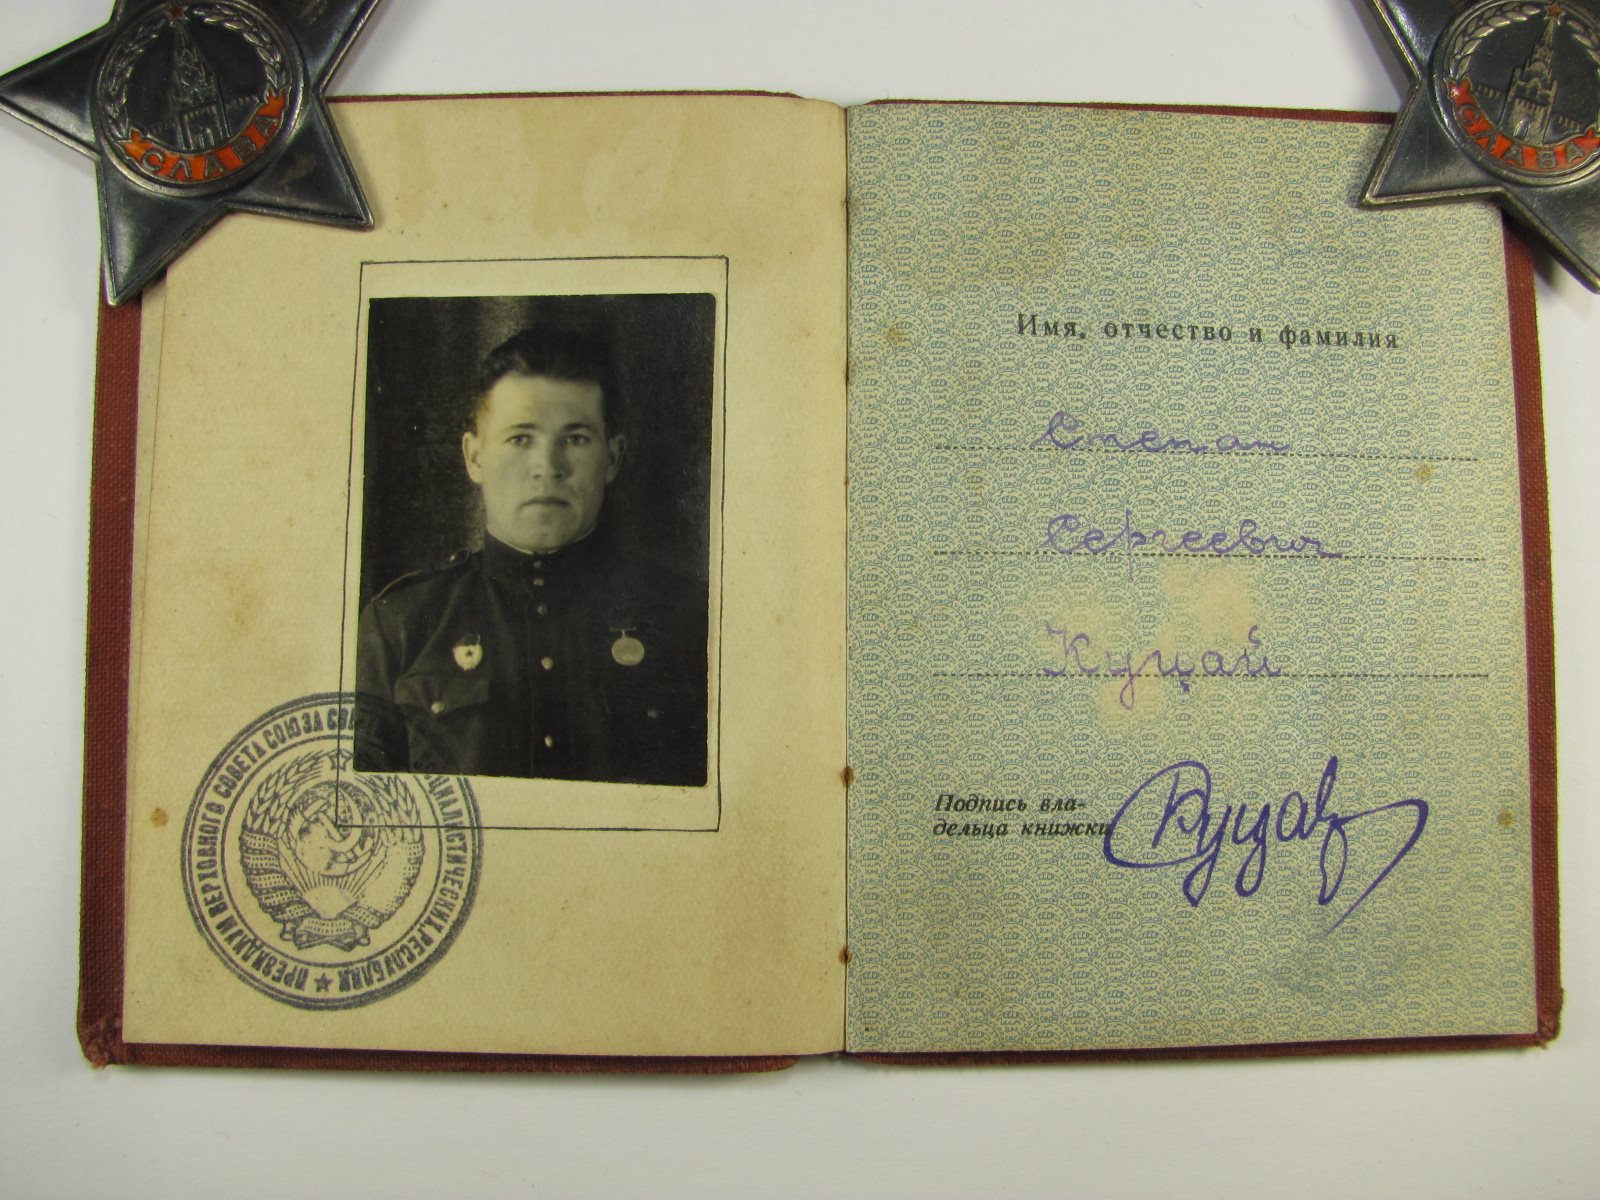 СЛАВА
СЛАВА
ПРЕЗИДИУМ ВЕРХОВНОГО СОВЕТА СОЮЗА СОВЕТСКИХ СОЦИАЛИСТИЧЕСКИХ РЕСПУБЛИК
Имя, отчество и фамилия
Степан
Сергеевич
Куцай
Подпись вла-
дельца книжки
Куцай